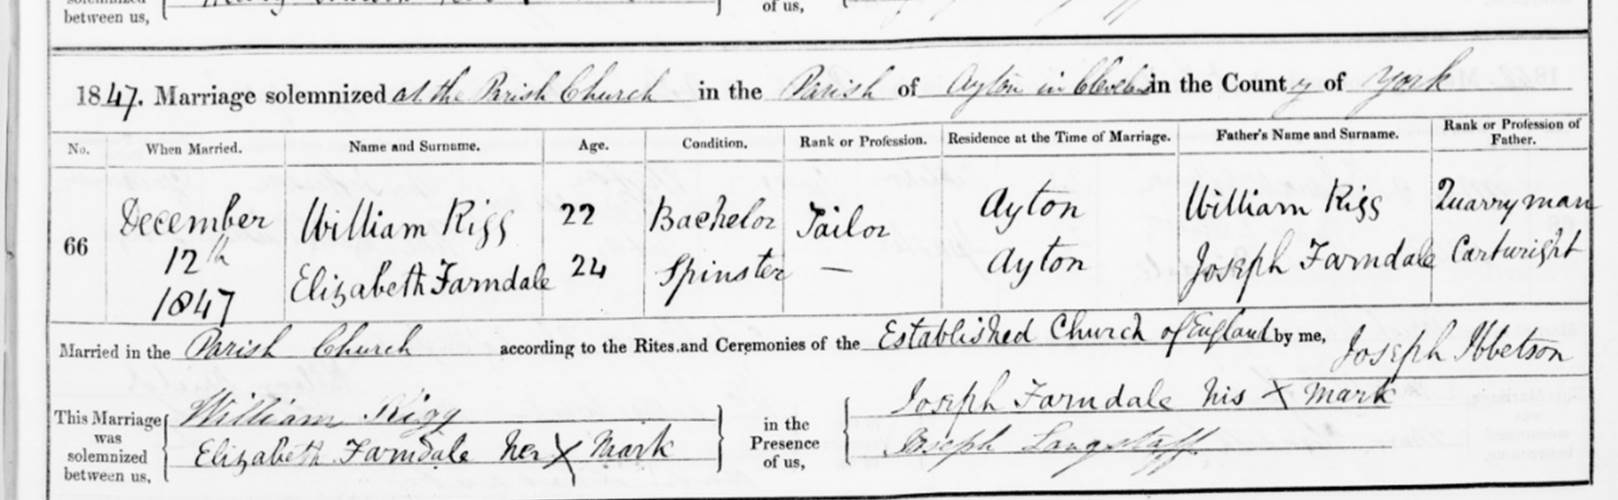 solemnized
between us,
of us,
1847. Marriage solemnized at the Parish Church in the Parish of Ayton in Cleveland in the County of York
No. When Married. Name and Surname. Age. Condition. Rank or Profession. Residence at the Time of Marriage. Father's Name and Surname. Rank or Profession of Father.
66 December 12th 1847
William Rigg 22 Bachelor Tailor Ayton William Rigg Quarryman
Elizabeth Farndale 24 Spinster — Ayton Joseph Farndale Cartwright
Married in the Parish Church according to the Rites and Ceremonies of the Established Church of England by me, Joseph Ibbetson
This Marriage was solemnized between us,
William Rigg
Elizabeth Farndale her X Mark
in the Presence of us,
Joseph Farndale his X mark
Joseph Langstaff